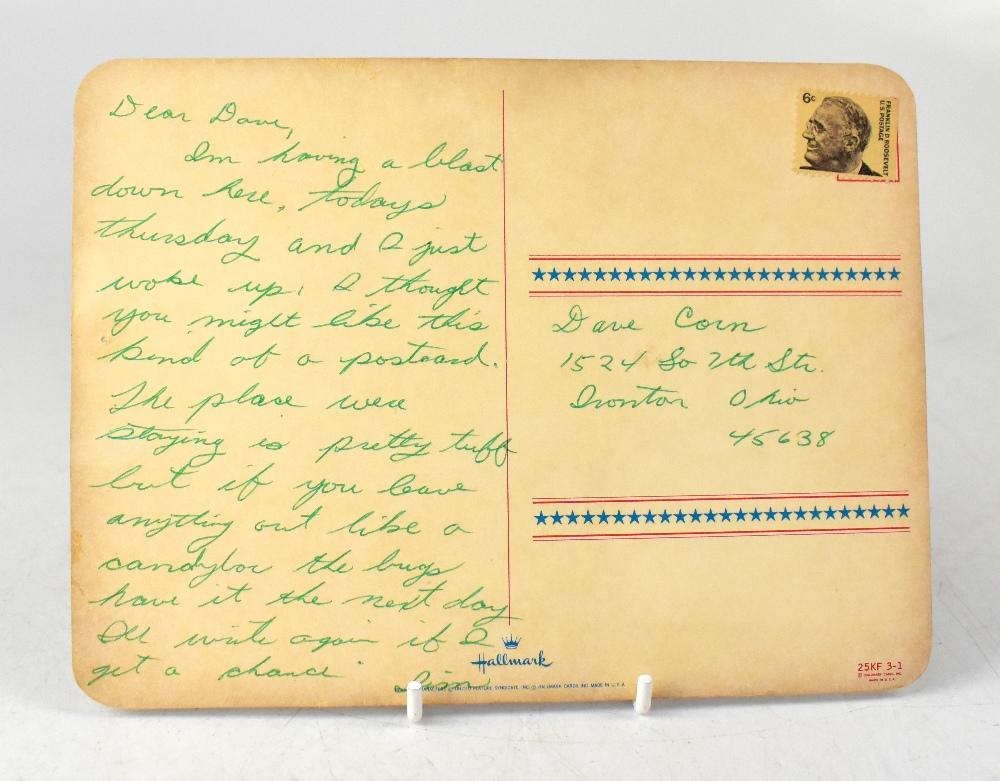 Dear Dave,
Im having a blast
down here, todays
thursday and I just
woke up, I thought
you might like this
kind of a postcard.
The place were
staying is pretty tuff
but if you leave
anything out like a
candybar the bugs
have it the next day
Ill write again if I
get a chance
6c
FRANKLIN D. ROOSEVELT
U.S. POSTAGE
Dave Corn
1524 So 7th Str.
Ironton Ohio
45638
Hallmark
FEATURE SYNDICATE, INC. © HALLMARK CARDS, INC. MADE IN U.S.A.
25KF 3-1
© HALLMARK CARDS, INC.
MADE IN U.S.A.